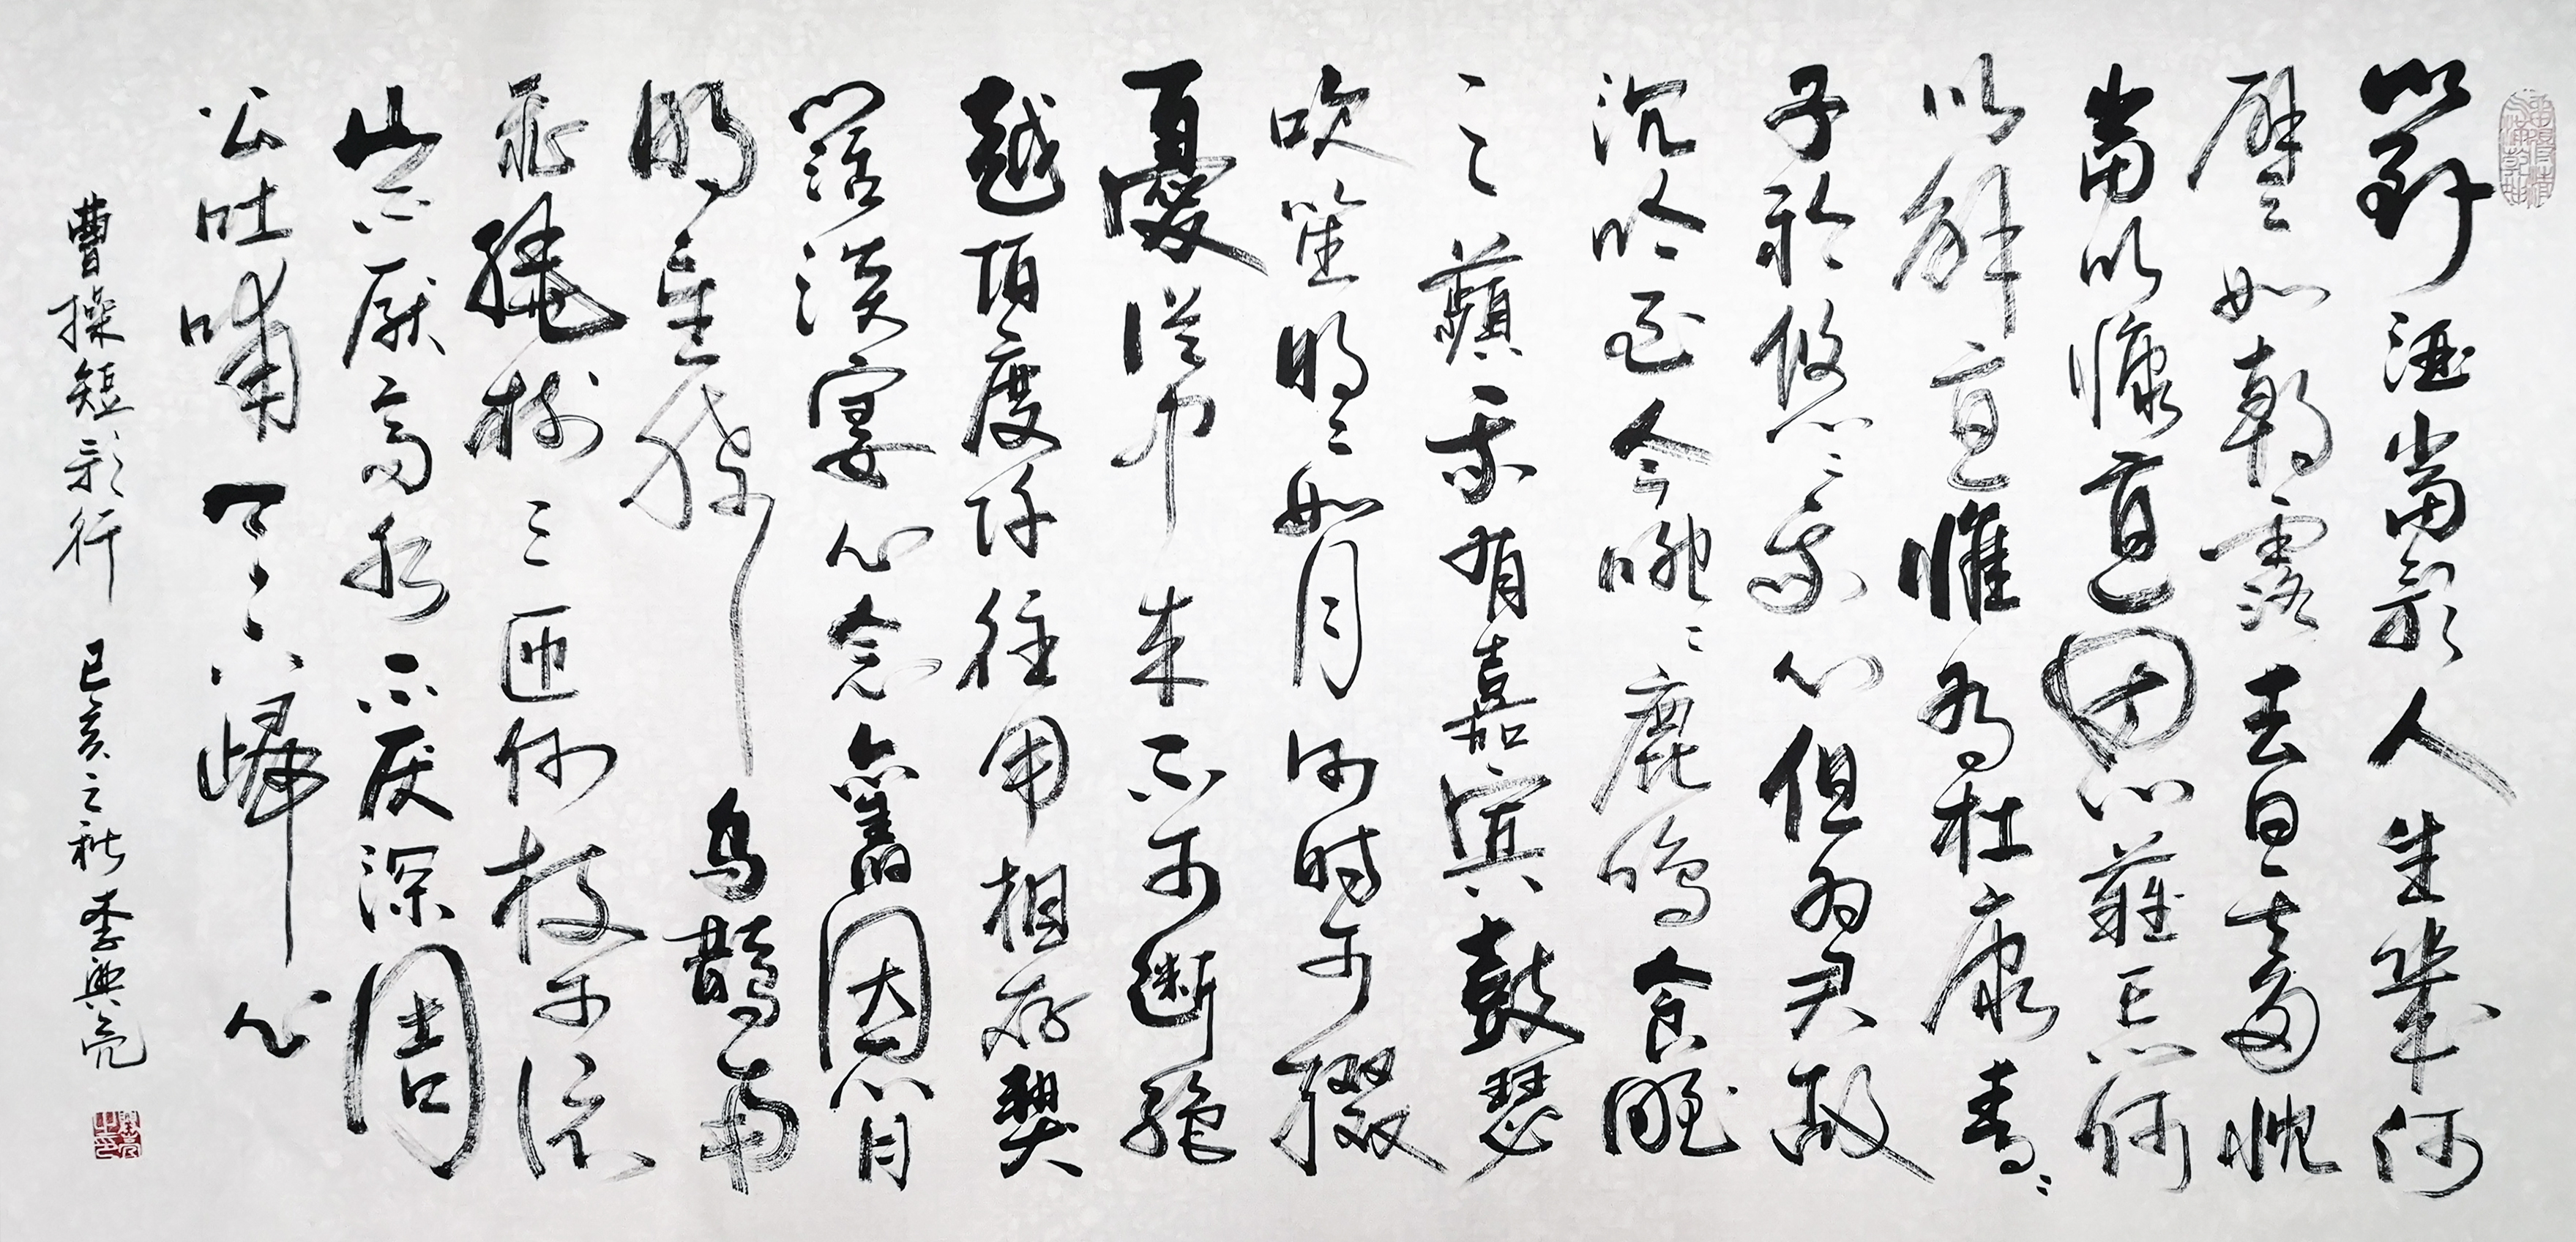 對酒當歌人生幾何
譬如朝露去日苦多慨
當以慷憂思難忘何
以解憂惟有杜康青〻
子衿悠〻我心但為君故
沉吟至今呦〻鹿鳴食野
之蘋我有嘉賓鼓瑟
吹笙明〻如月何時可掇
憂從中來不可斷絕
越陌度阡往用相存契
闊談宴心念舊恩月
明星稀烏鵲南
飛繞樹三匝何枝可依
山不厭高水不厭深周
公吐哺天下歸心
曹操短歌行 己亥之秋李興亮